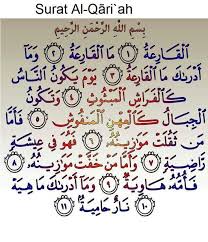 Surat Al-Qāri`ah
بِسْمِ اللَّهِ الرَّحْمَنِ الرَّحِيمِ
ٱلْقَارِعَةُ ١ مَا ٱلْقَارِعَةُ ٢ وَمَآ
أَدْرَىٰكَ مَا ٱلْقَارِعَةُ ٣ يَوْمَ يَكُونُ ٱلنَّاسُ
كَٱلْفَرَاشِ ٱلْمَبْثُوثِ ٤ وَتَكُونُ
ٱلْجِبَالُ كَٱلْعِهْنِ ٱلْمَنفُوشِ ٥ فَأَمَّا
مَن ثَقُلَتْ مَوَٰزِينُهُۥ ٦ فَهُوَ فِى عِيشَةٍ
رَّاضِيَةٍ ٧ وَأَمَّا مَنْ خَفَّتْ مَوَٰزِينُهُۥ ٨
فَأُمُّهُۥ هَاوِيَةٌ ٩ وَمَآ أَدْرَىٰكَ مَا هِيَهْ
١٠ نَارٌ حَامِيَةٌۢ ١١